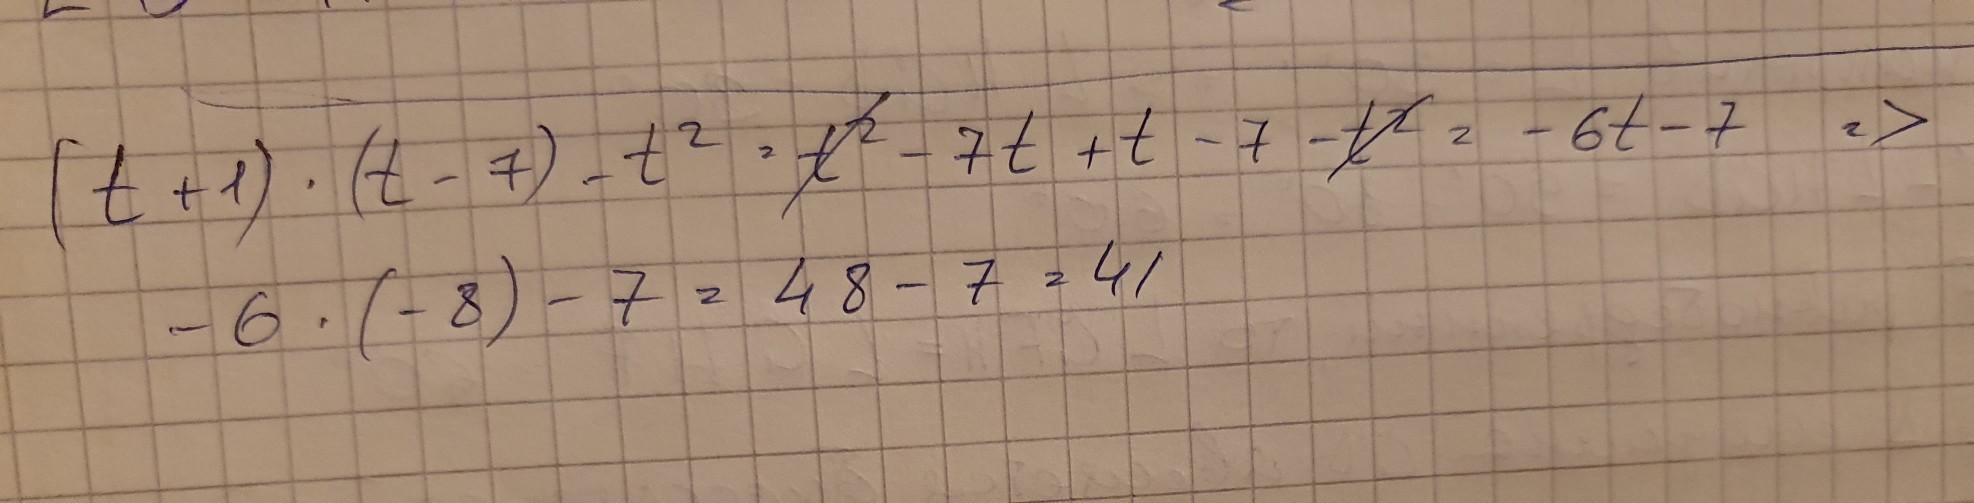 (t+1)·(t-7)-t² = t²-7t+t-7-t² = -6t-7 =>
-6·(-8)-7 = 48-7 = 41